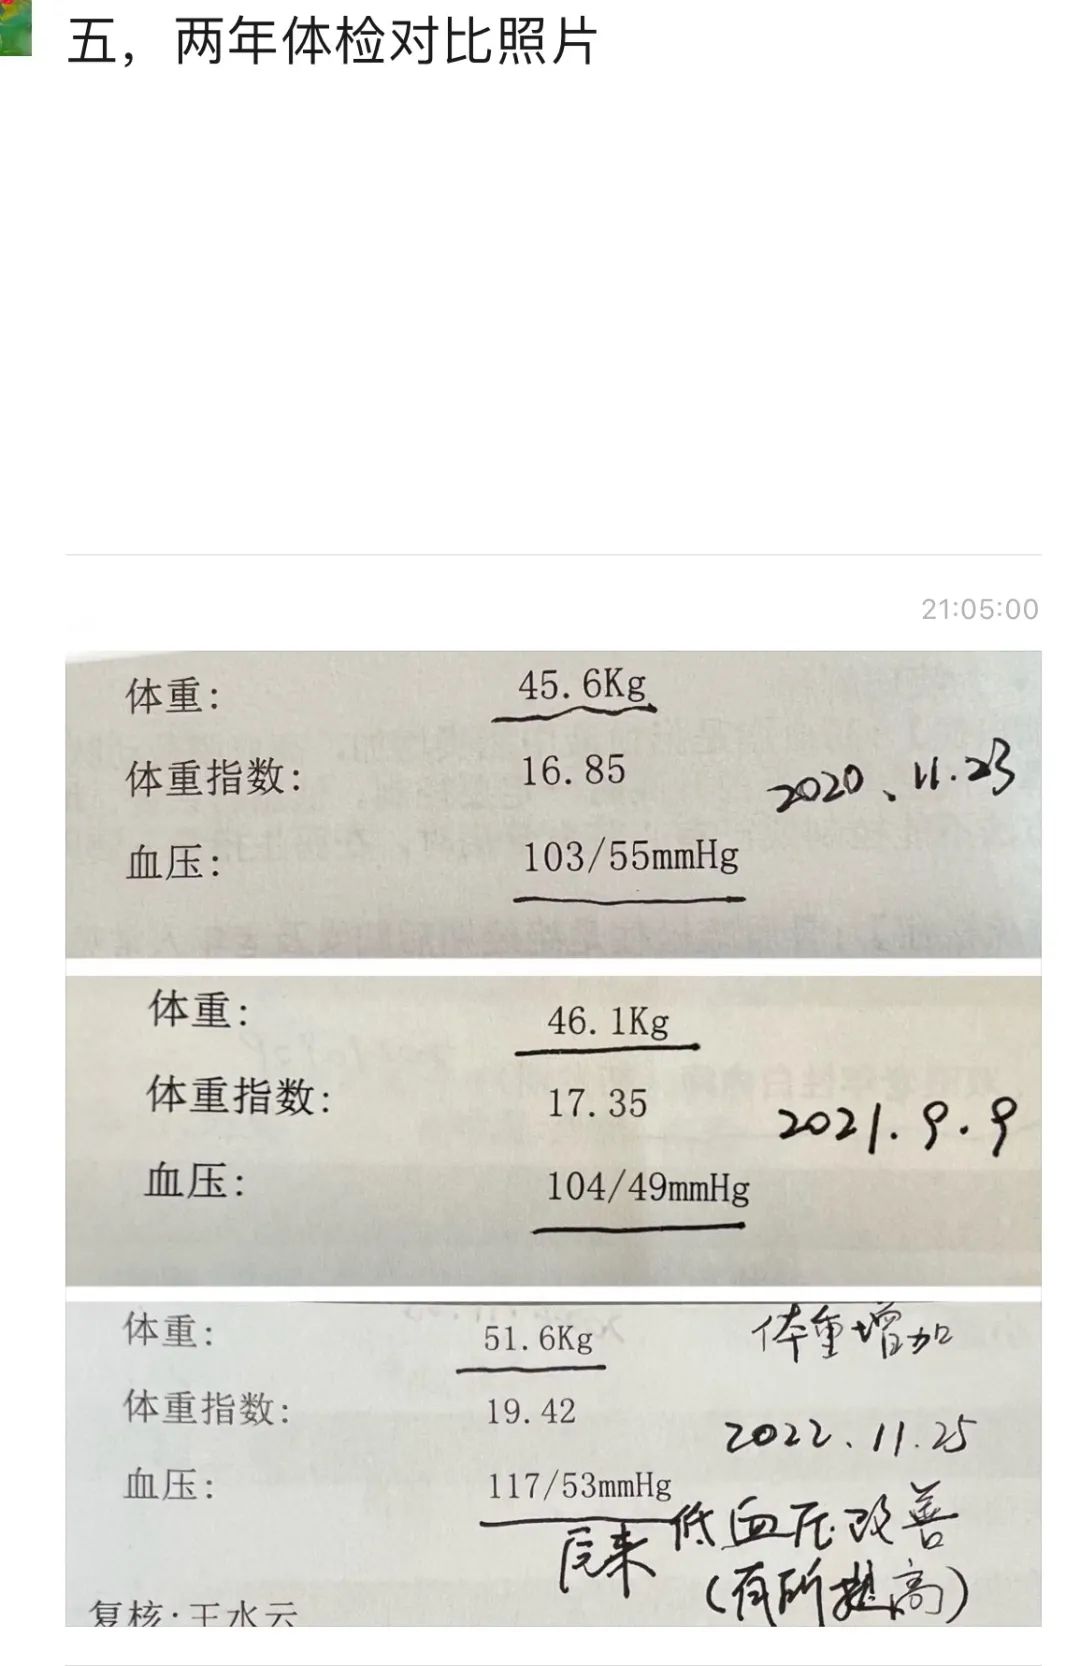 五，两年体检对比照片
21:05:00
体重： 45.6Kg
体重指数： 16.85
2020、11.23
血压： 103/55mmHg
体重： 46.1Kg
体重指数： 17.35
2021.9.9
血压： 104/49mmHg
体重： 51.6Kg
体重增加
体重指数： 19.42
2022、11.25
血压： 117/53mmHg
后来低血压改善
（有所提高）
复核：王水云